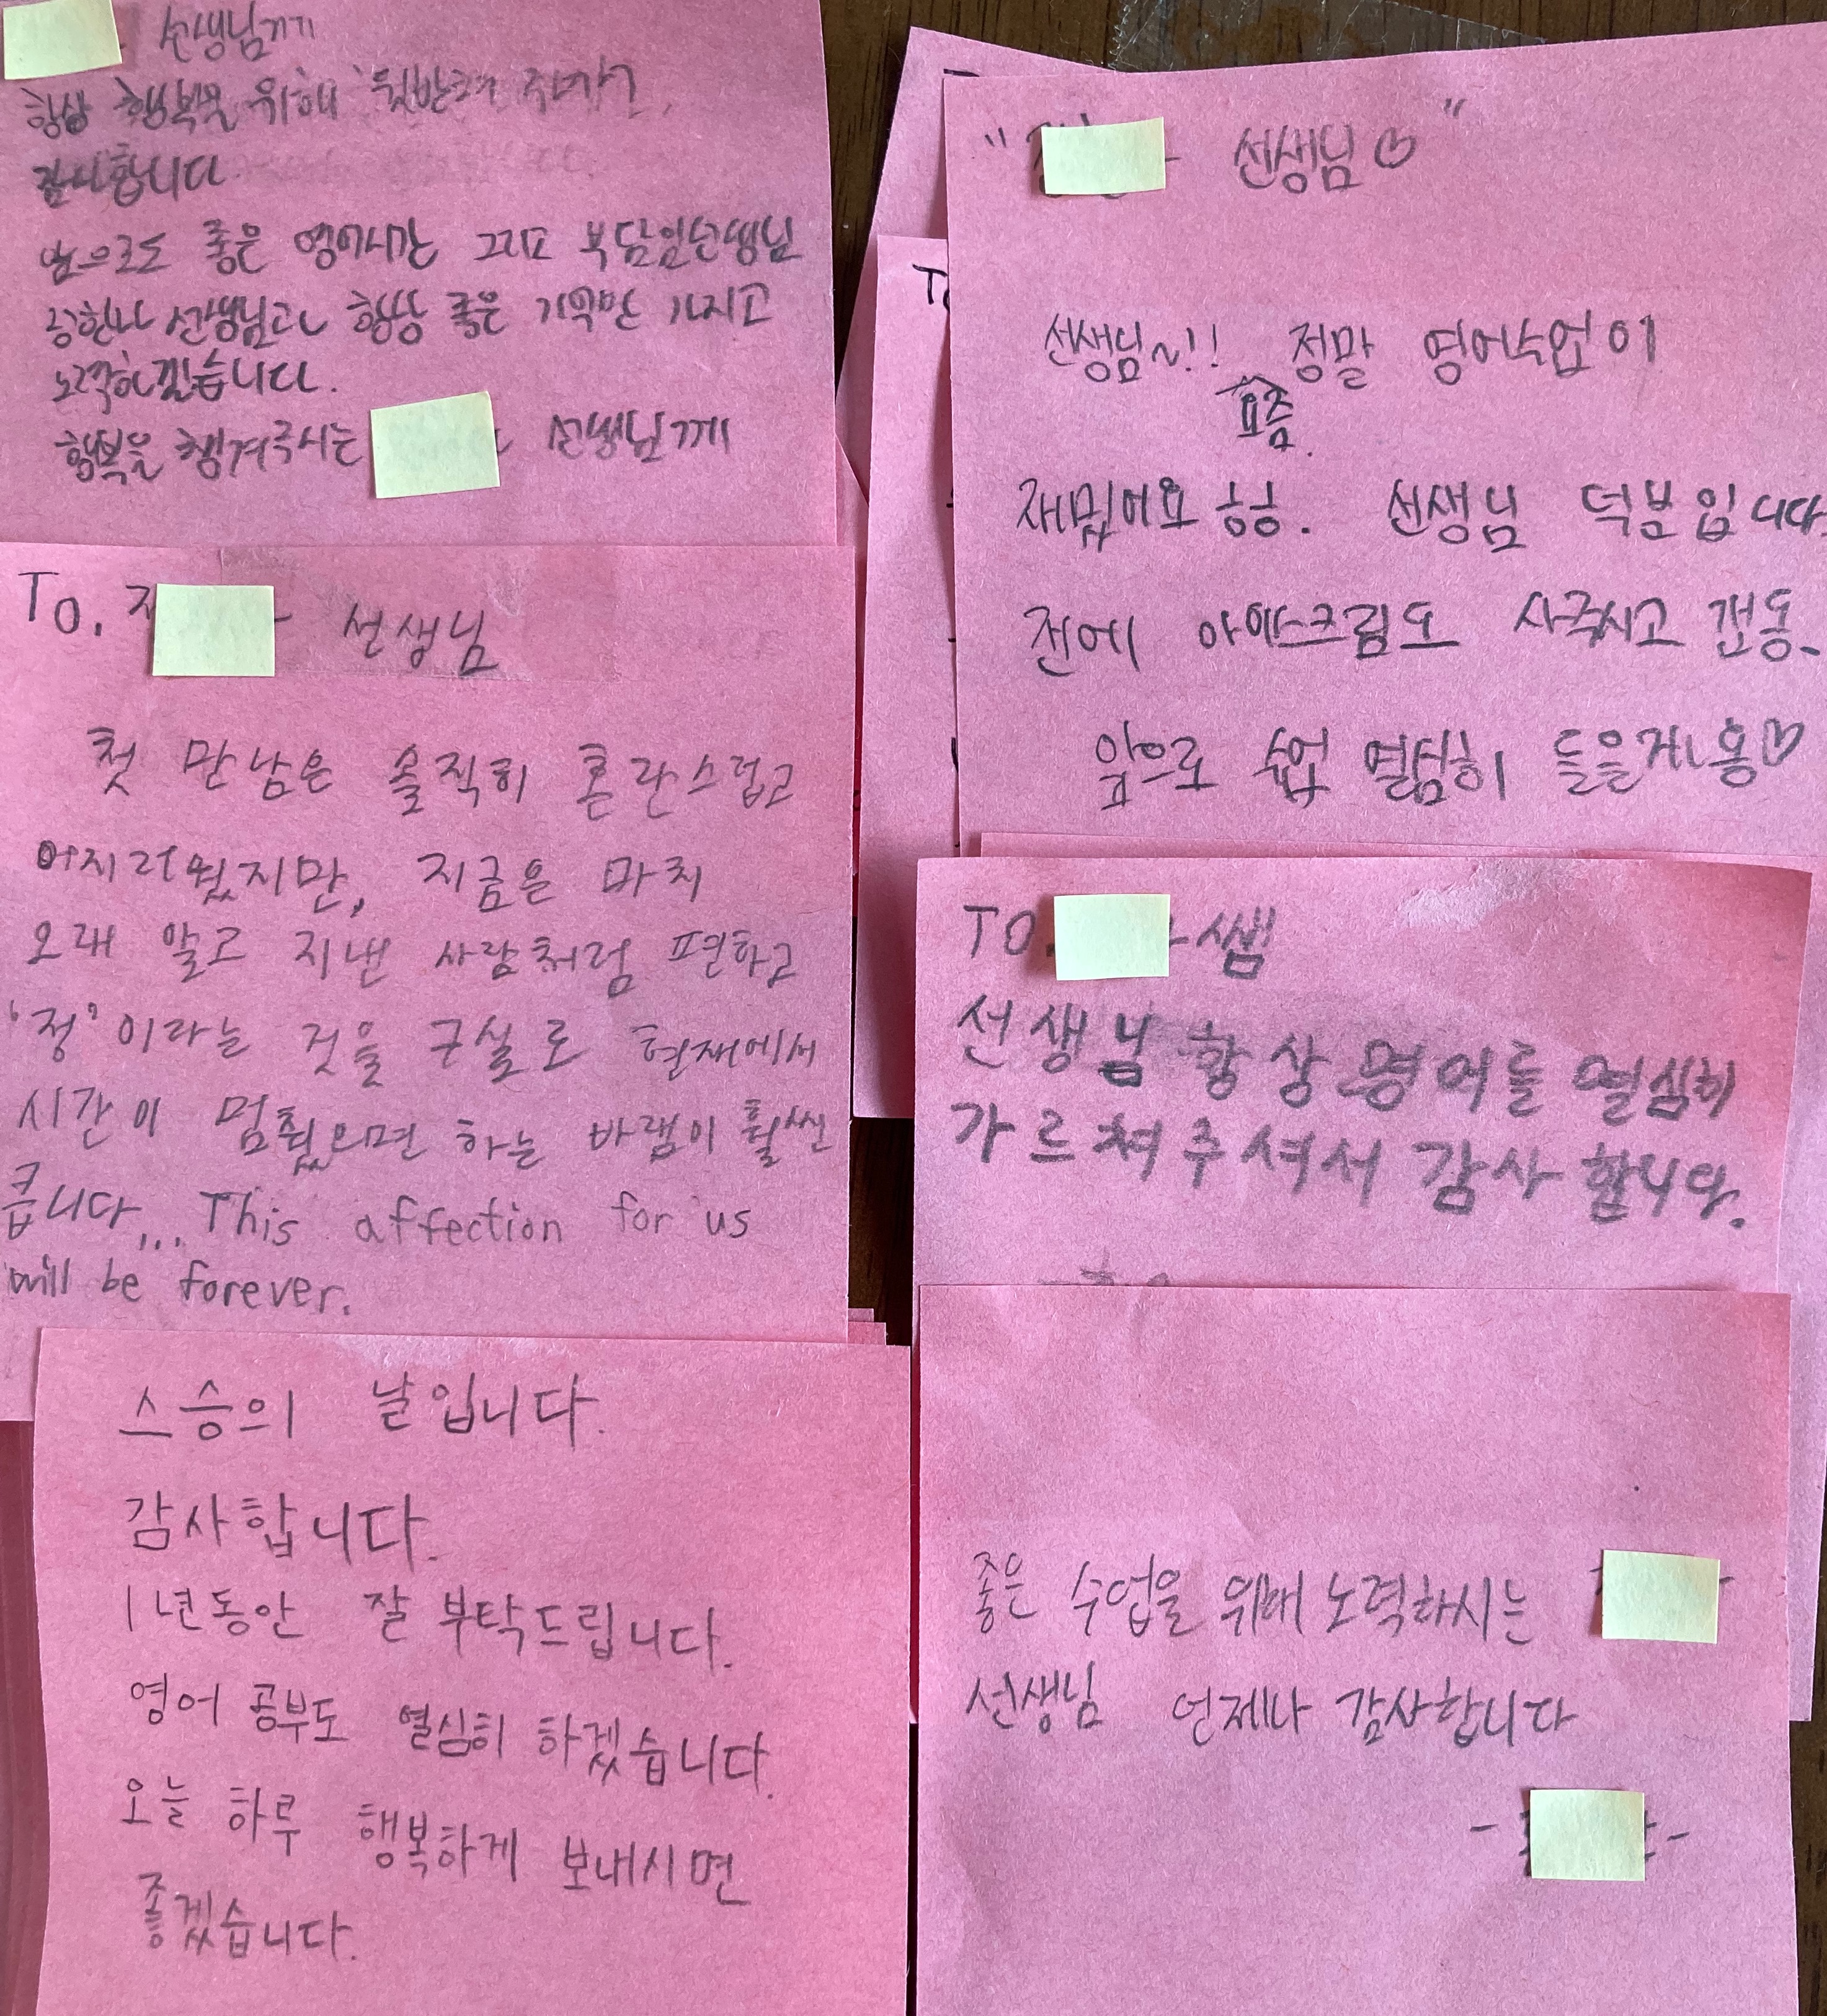 선생님께
항상 행복을 위해 뒷받쳐
감사합니다
앞으로도 좋은 영어시간 그리고 부담임선생님
선생님과 항상 좋은 기억만 가지고
노력하겠습니다.
행복을 챙겨주시는 선생님께
To. 선생님
첫 만남은 솔직히 혼란스럽고
어지러웠지만, 지금은 마치
오래 알고 지낸 사람처럼 편하고
'정'이라는 것을 구실로 현재에서
시간이 멈췄으면 하는 바램이 훨씬
큽니다... This affection for us
will be forever.
스승의 날입니다.
감사합니다.
1년동안 잘 부탁드립니다.
영어 공부도 열심히 하겠습니다.
오늘 하루 행복하게 보내시면
좋겠습니다.
" 선생님♡"
선생님~!! 요즘 정말 영어수업이
재밌어요 ㅎㅎ. 선생님 덕분입니다.
전에 아이스크림도 사주시고 갬동.
앞으로 수업 열심히 들을게용♡
TO. 쌤!
선생님 항상 영어를 열심히
가르쳐주셔서 감사합니다.
좋은 수업을 위해 노력하시는
선생님 언제나 감사합니다